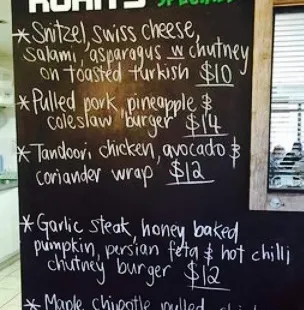 SPECIALS
* Snitzel, swiss cheese,
salami, asparagus w chutney
on toasted turkish $10
* Pulled pork, pineapple &
coleslaw burger $14
* Tandoori chicken, avocado &
coriander wrap $12
* Garlic steak, honey baked
pumpkin, persian feta & hot chilli
chutney burger $12
* Maple chipotle pulled